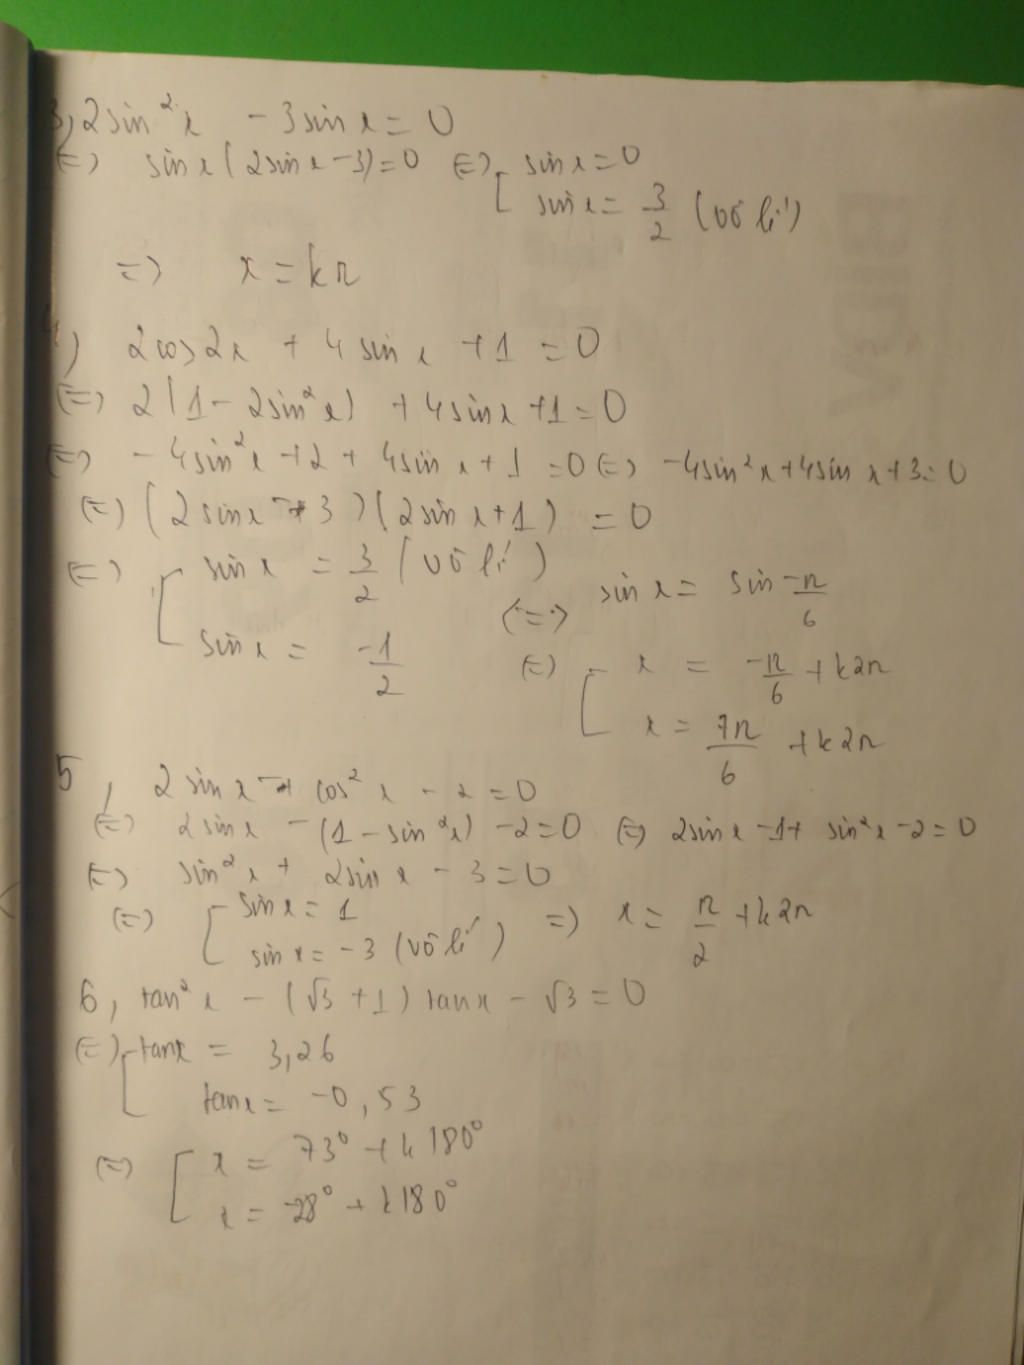 3, 2sin²x - 3sinx = 0
(=) sinx(2sinx-3)=0 (=) [ sinx=0
sinx = 3/2 (vô lí)
=) x = kπ
4) 2cos2x + 4sinx + 1 = 0
(=) 2(1-2sin²x) + 4sinx + 1 = 0
(=) -4sin²x + 2 + 4sinx + 1 = 0 (=) -4sin²x + 4sinx + 3 = 0
(=) (2sinx - 3)(2sinx + 1) = 0
(=) [ sinx = 3/2 (vô lí)
sinx = -1/2
(=) sinx = sin -π/6
(=) [ x = -π/6 + k2π
x = 7π/6 + k2π
5, 2sinx - cos²x - 2 = 0
(=) 2sinx - (1 - sin²x) - 2 = 0 (=) 2sinx - 1 + sin²x - 2 = 0
(=) sin²x + 2sinx - 3 = 0
(=) [ sinx = 1 =) x = π/2 + k2π
sinx = -3 (vô lí)
6, tan²x - (√3 + 1) tanx - √3 = 0
(=) [ tanx = 3,26
tanx = -0,53
(=) [ x = 73° + k180°
x = -28° + k180°